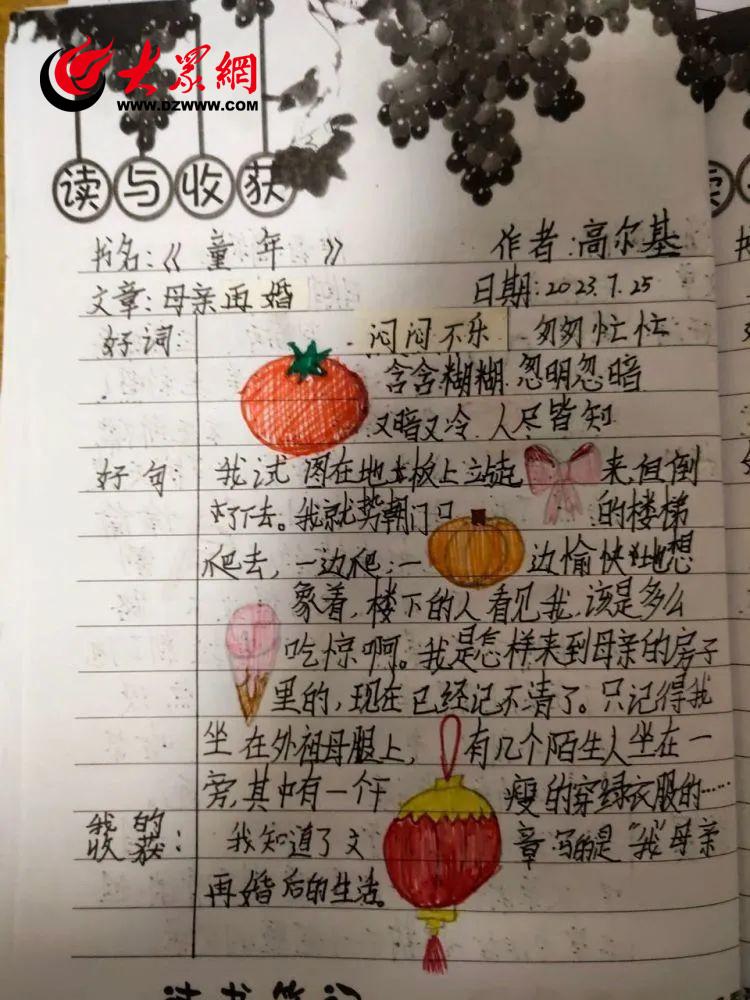 大眾網
WWW.DZWWW.COM
读与收获
书名:《童年》 作者:高尔基
文章:母亲再婚 日期:2023.7.25
好词: 闷闷不乐 匆匆忙忙
含含糊糊 忽明忽暗
又暗又冷 人尽皆知
好句: 我试图在地板上站起来,但倒
了下去。我就势朝门口的楼梯
爬去,一边爬;一边愉快地想
象着,楼下的人看见我,该是多么
吃惊啊。我是怎样来到母亲的房子
里的,现在已经记不清了。只记得我
坐在外祖母服上,有几个陌生人坐在一
旁,其中有一个干瘦的穿绿衣服的……
我的收获: 我知道了文章写的是“我”母亲
再婚后的生活。
读书笔记